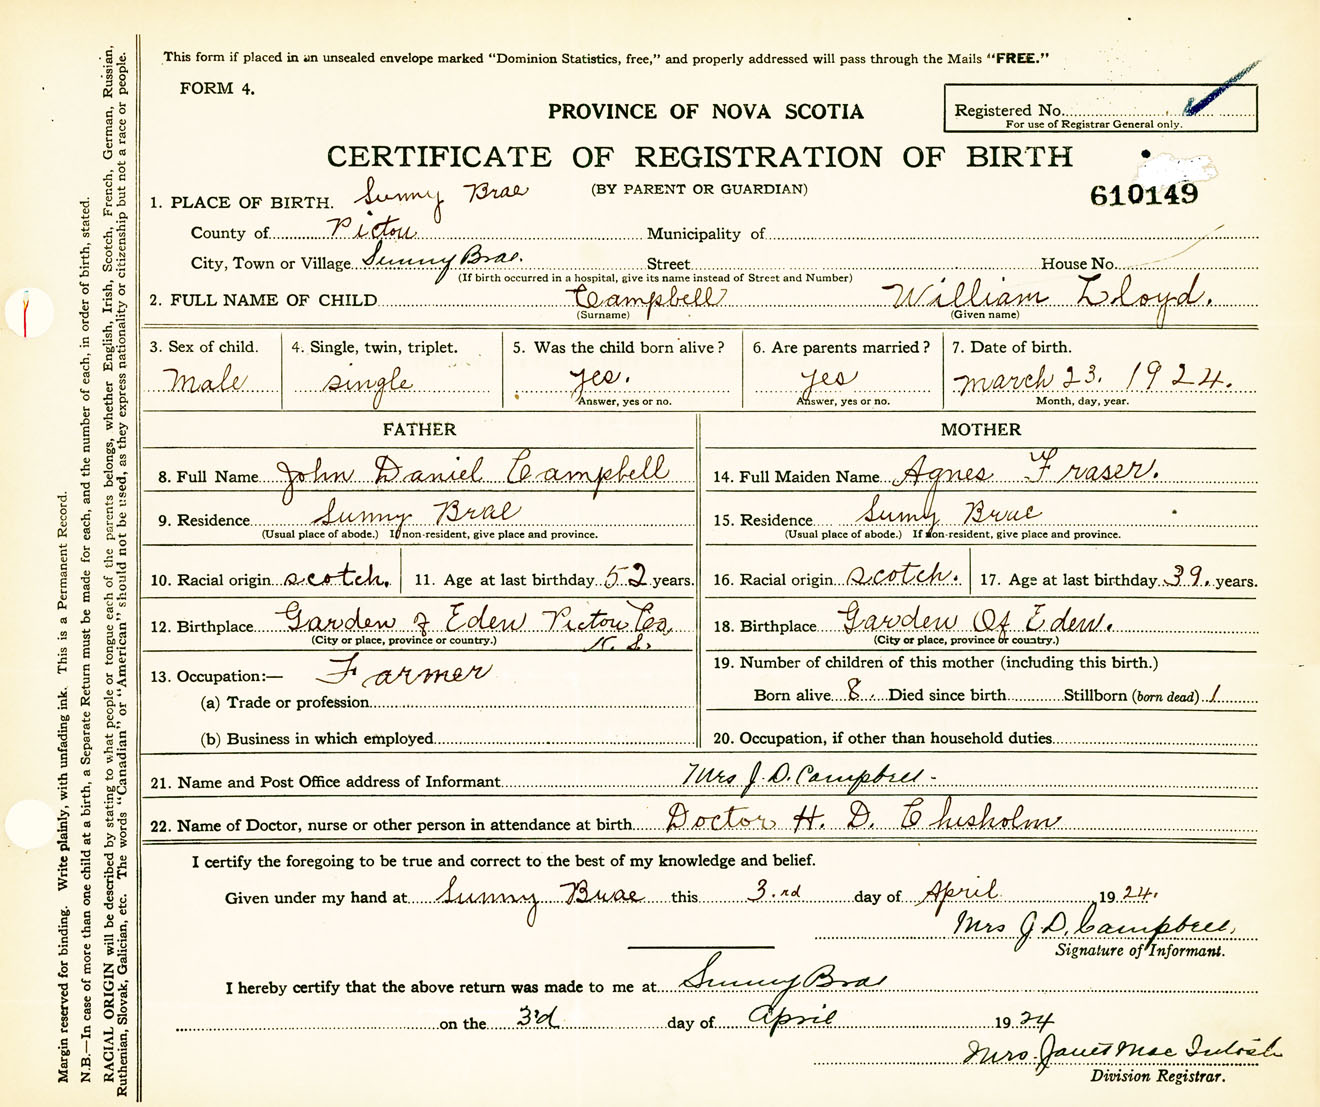 This form if placed in an unsealed envelope marked "Dominion Statistics, free," and properly addressed will pass through the Mails "FREE."
FORM 4.
PROVINCE OF NOVA SCOTIA
Registered No.
For use of Registrar General only.
CERTIFICATE OF REGISTRATION OF BIRTH
(BY PARENT OR GUARDIAN)
610149
1. PLACE OF BIRTH. Sunny Brae
County of Pictou Municipality of
City, Town or Village Sunny Brae. Street House No.
(If birth occurred in a hospital, give its name instead of Street and Number)
2. FULL NAME OF CHILD Campbell William Lloyd.
(Surname) (Given name)
3. Sex of child. 4. Single, twin, triplet. 5. Was the child born alive? 6. Are parents married? 7. Date of birth.
Male single yes. yes march 23. 1924.
Answer, yes or no. Answer, yes or no. Month, day, year.
FATHER MOTHER
8. Full Name John Daniel Campbell 14. Full Maiden Name Agnes Fraser.
9. Residence Sunny Brae 15. Residence Sunny Brae
(Usual place of abode.) If non-resident, give place and province. (Usual place of abode.) If non-resident, give place and province.
10. Racial origin scotch. 11. Age at last birthday 52 years. 16. Racial origin scotch. 17. Age at last birthday 39. years.
12. Birthplace Garden of Eden Pictou Co. 18. Birthplace Garden Of Eden.
(City or place, province or country.) N. S. (City or place, province or country.)
13. Occupation:— Farmer 19. Number of children of this mother (including this birth.)
(a) Trade or profession Born alive 8 Died since birth Stillborn (born dead) 1
(b) Business in which employed 20. Occupation, if other than household duties
21. Name and Post Office address of Informant Mrs J. D. Campbell -
22. Name of Doctor, nurse or other person in attendance at birth Doctor H. D. Chisholm
I certify the foregoing to be true and correct to the best of my knowledge and belief.
Given under my hand at Sunny Brae this 3.rd day of April 1924.
Mrs J. D. Campbell,
Signature of Informant.
I hereby certify that the above return was made to me at Sunny Brae
on the 3'd day of April 1924
Mrs. Janet Mac Intosh
Division Registrar.
Margin reserved for binding. Write plainly, with unfading ink. This is a Permanent Record.
N.B.—In case of more than one child at a birth, a Separate Return must be made for each, and the number of each, in order of birth, stated.
RACIAL ORIGIN will be described by stating to what people or tongue each of the parents belongs, whether English, Irish, Scotch, French, German, Russian,
Ruthenian, Slovak, Galician, etc. The words "Canadian" or "American" should not be used, as they express nationality or citizenship but not a race or people.